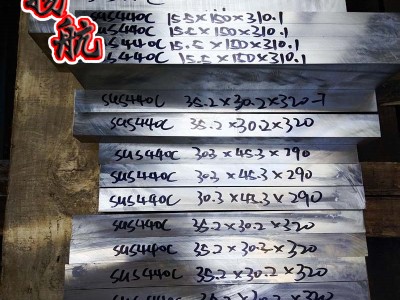 航
SUS440C 15.5×150×310.1
SUS440C 15.5×150×310.1
SUS440C 15.5×150×310.1
SUS440C 15.5×150×310.1
SUS440C 35.2×30.2×320
SUS440C 35.2×30.2×320
SUS440C 30.3×45.3×290
SUS440C 30.3×45.3×290
SUS440C 30.3×45.3×290
SUS440C 35.2×30.2×320
SUS440C 35.2×30.2×320
SUS440C 35.2×30.2×320
SUS440C 35.2×30.2×320